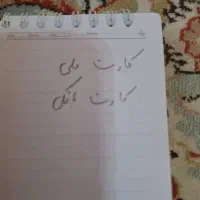 کارت ملی
کارت بانکی